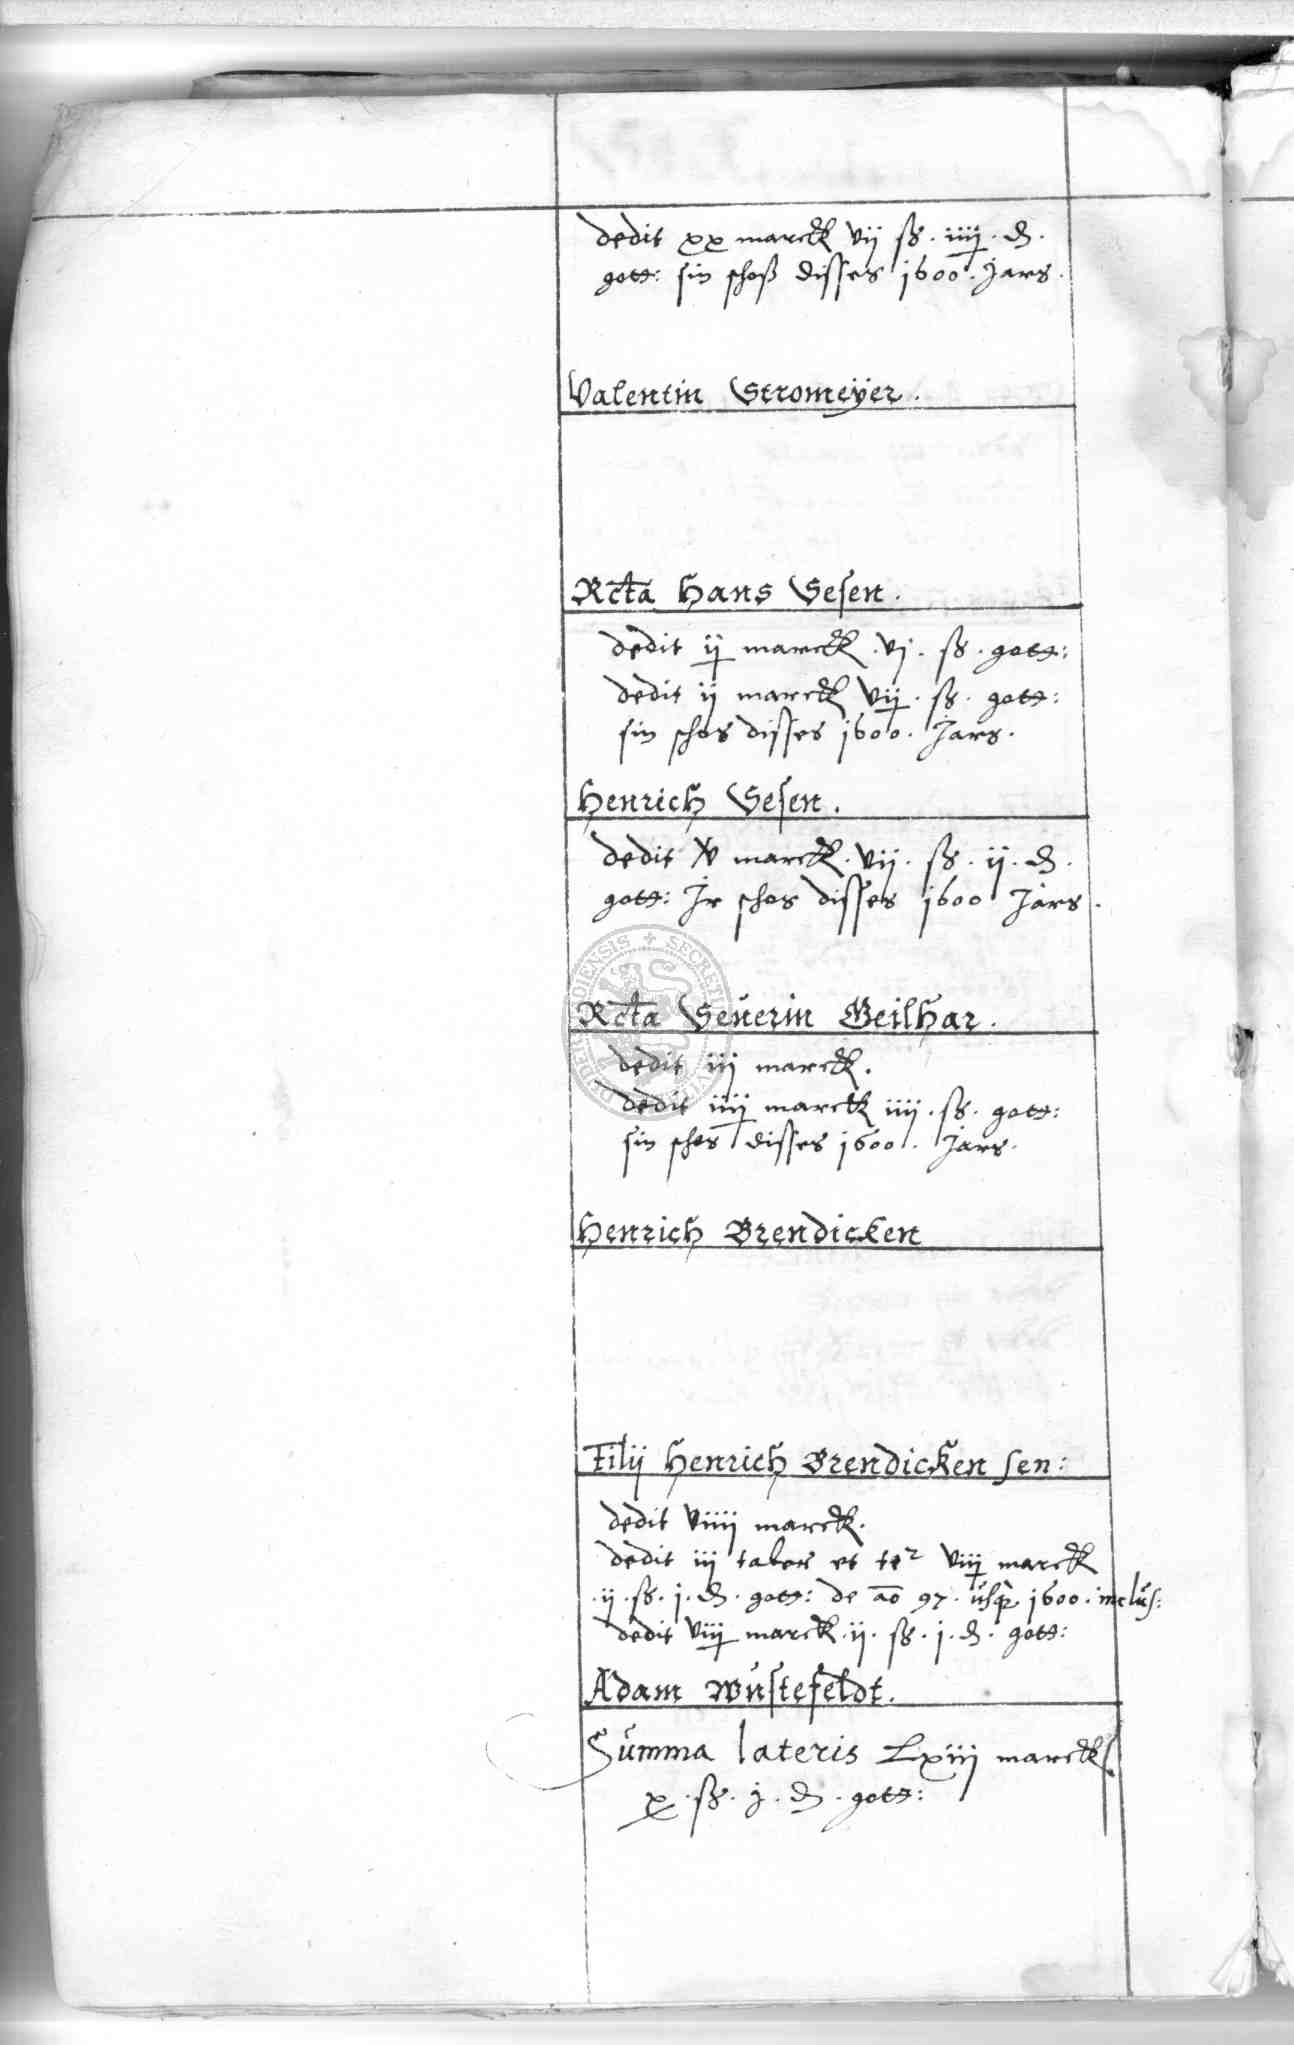 dedit xx marck vij ß. iiij. d.
gott: sin schoß disses 1600. Jars.
Valentin Stromeÿer.
Rcta Hans Sesen.
dedit ij marck. vj. ß. gott:
dedit ij marck vij. ß. gott:
sin schos disses 1600. Jars.
Henrich Sesen.
dedit xv marck. vij. ß. ij. d.
gott: Jr schos disses 1600 Jars.
Rcta Seuerin Geilhar.
dedit iij marck.
dedit iiij marck iiij. ß. gott:
sin schos disses 1600. Jars.
Henrich Brendicken
Filij Henrich Brendicken sen:
dedit viiij marck.
dedit iij taler et viij marck
.ij. ß. j. d. gott: de ao 97. usq 1600. inclus:
dedit viij marck. ij. ß. j. d. gott:
Adam Wustefeldt.
Summa lateris Lxiij marck
x. ß. j. d. gott:
SECRETI